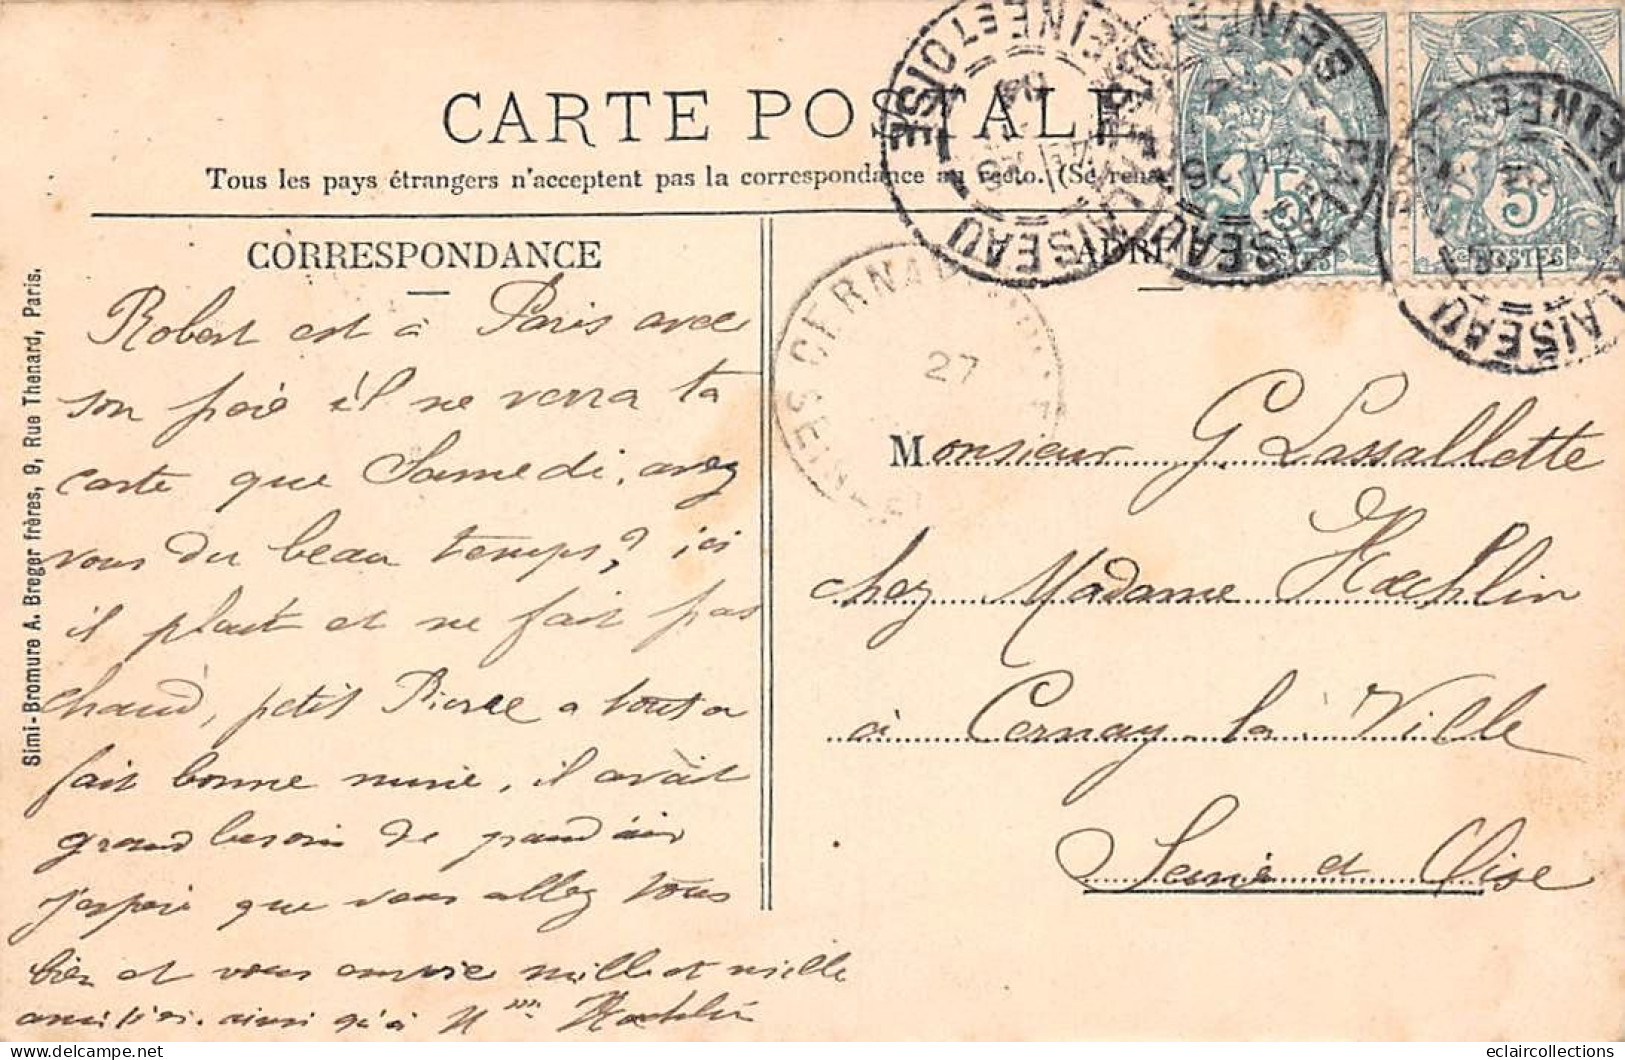 CARTE POSTALE
Tous les pays étrangers n'acceptent pas la correspondance au recto. (Se rens
CORRESPONDANCE
ADRE
Robert est à Paris avec
son père il ne verra ta
carte que Samedi, avez
vous du beau temps? ici
il pleut et ne fait pas
chaud, petit Pierre a tout a
fait bonne mine, il avait
grand besoin de grand air
j'espère que vous allez tous
bien et vous envoie mille et mille
amitiés. ainsi qu'à Mme Hoechlin
Monsieur G. Lassallette
chez Madame Hoechlin
à Cernay-la-Ville
Seine et Oise
Simi-Bromure A. Breger frères, 9, Rue Thenard, Paris.
PALAISEAU
SEINE ET OISE
PALAISEAU
SEINE ET
PALAISEAU
SEINE ET
5
POSTES
5
POSTES
CERNAY
27
SEINE
eclaircollections